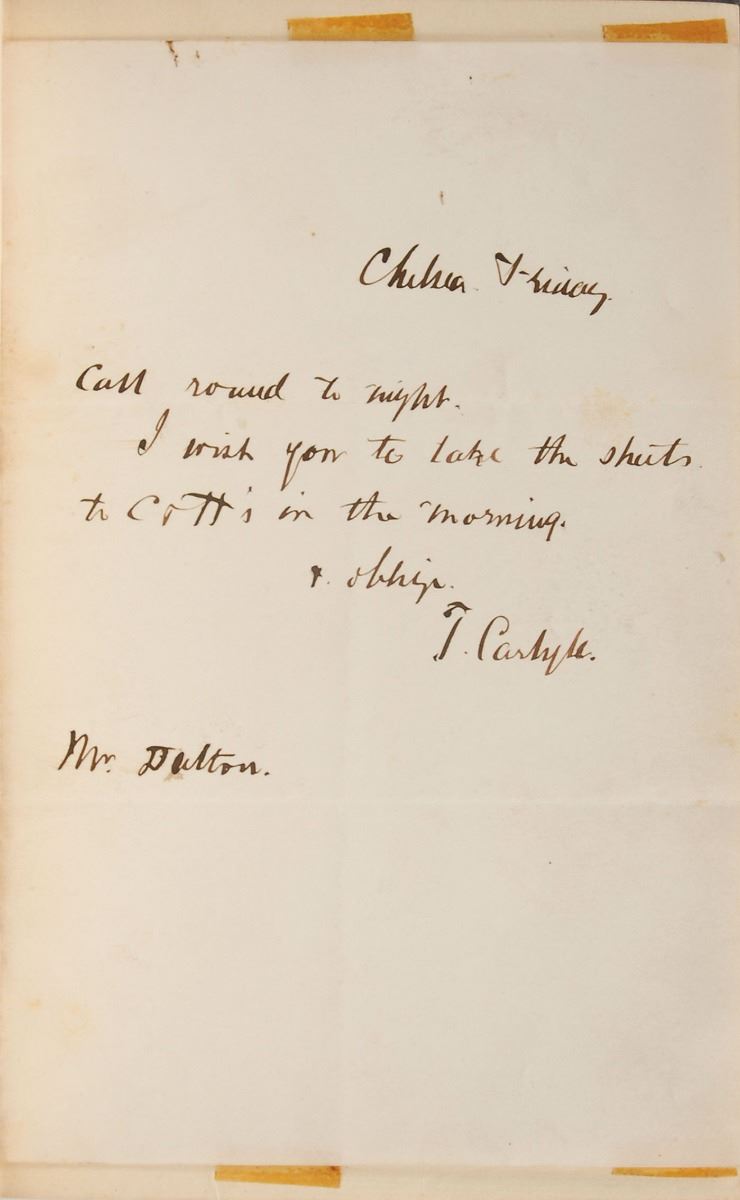 Chelsea. Friday.
Call round to night.
I wish you to take the sheets
to Cott's in the morning.
& oblige.
T. Carlyle.
Mr. Dalton.